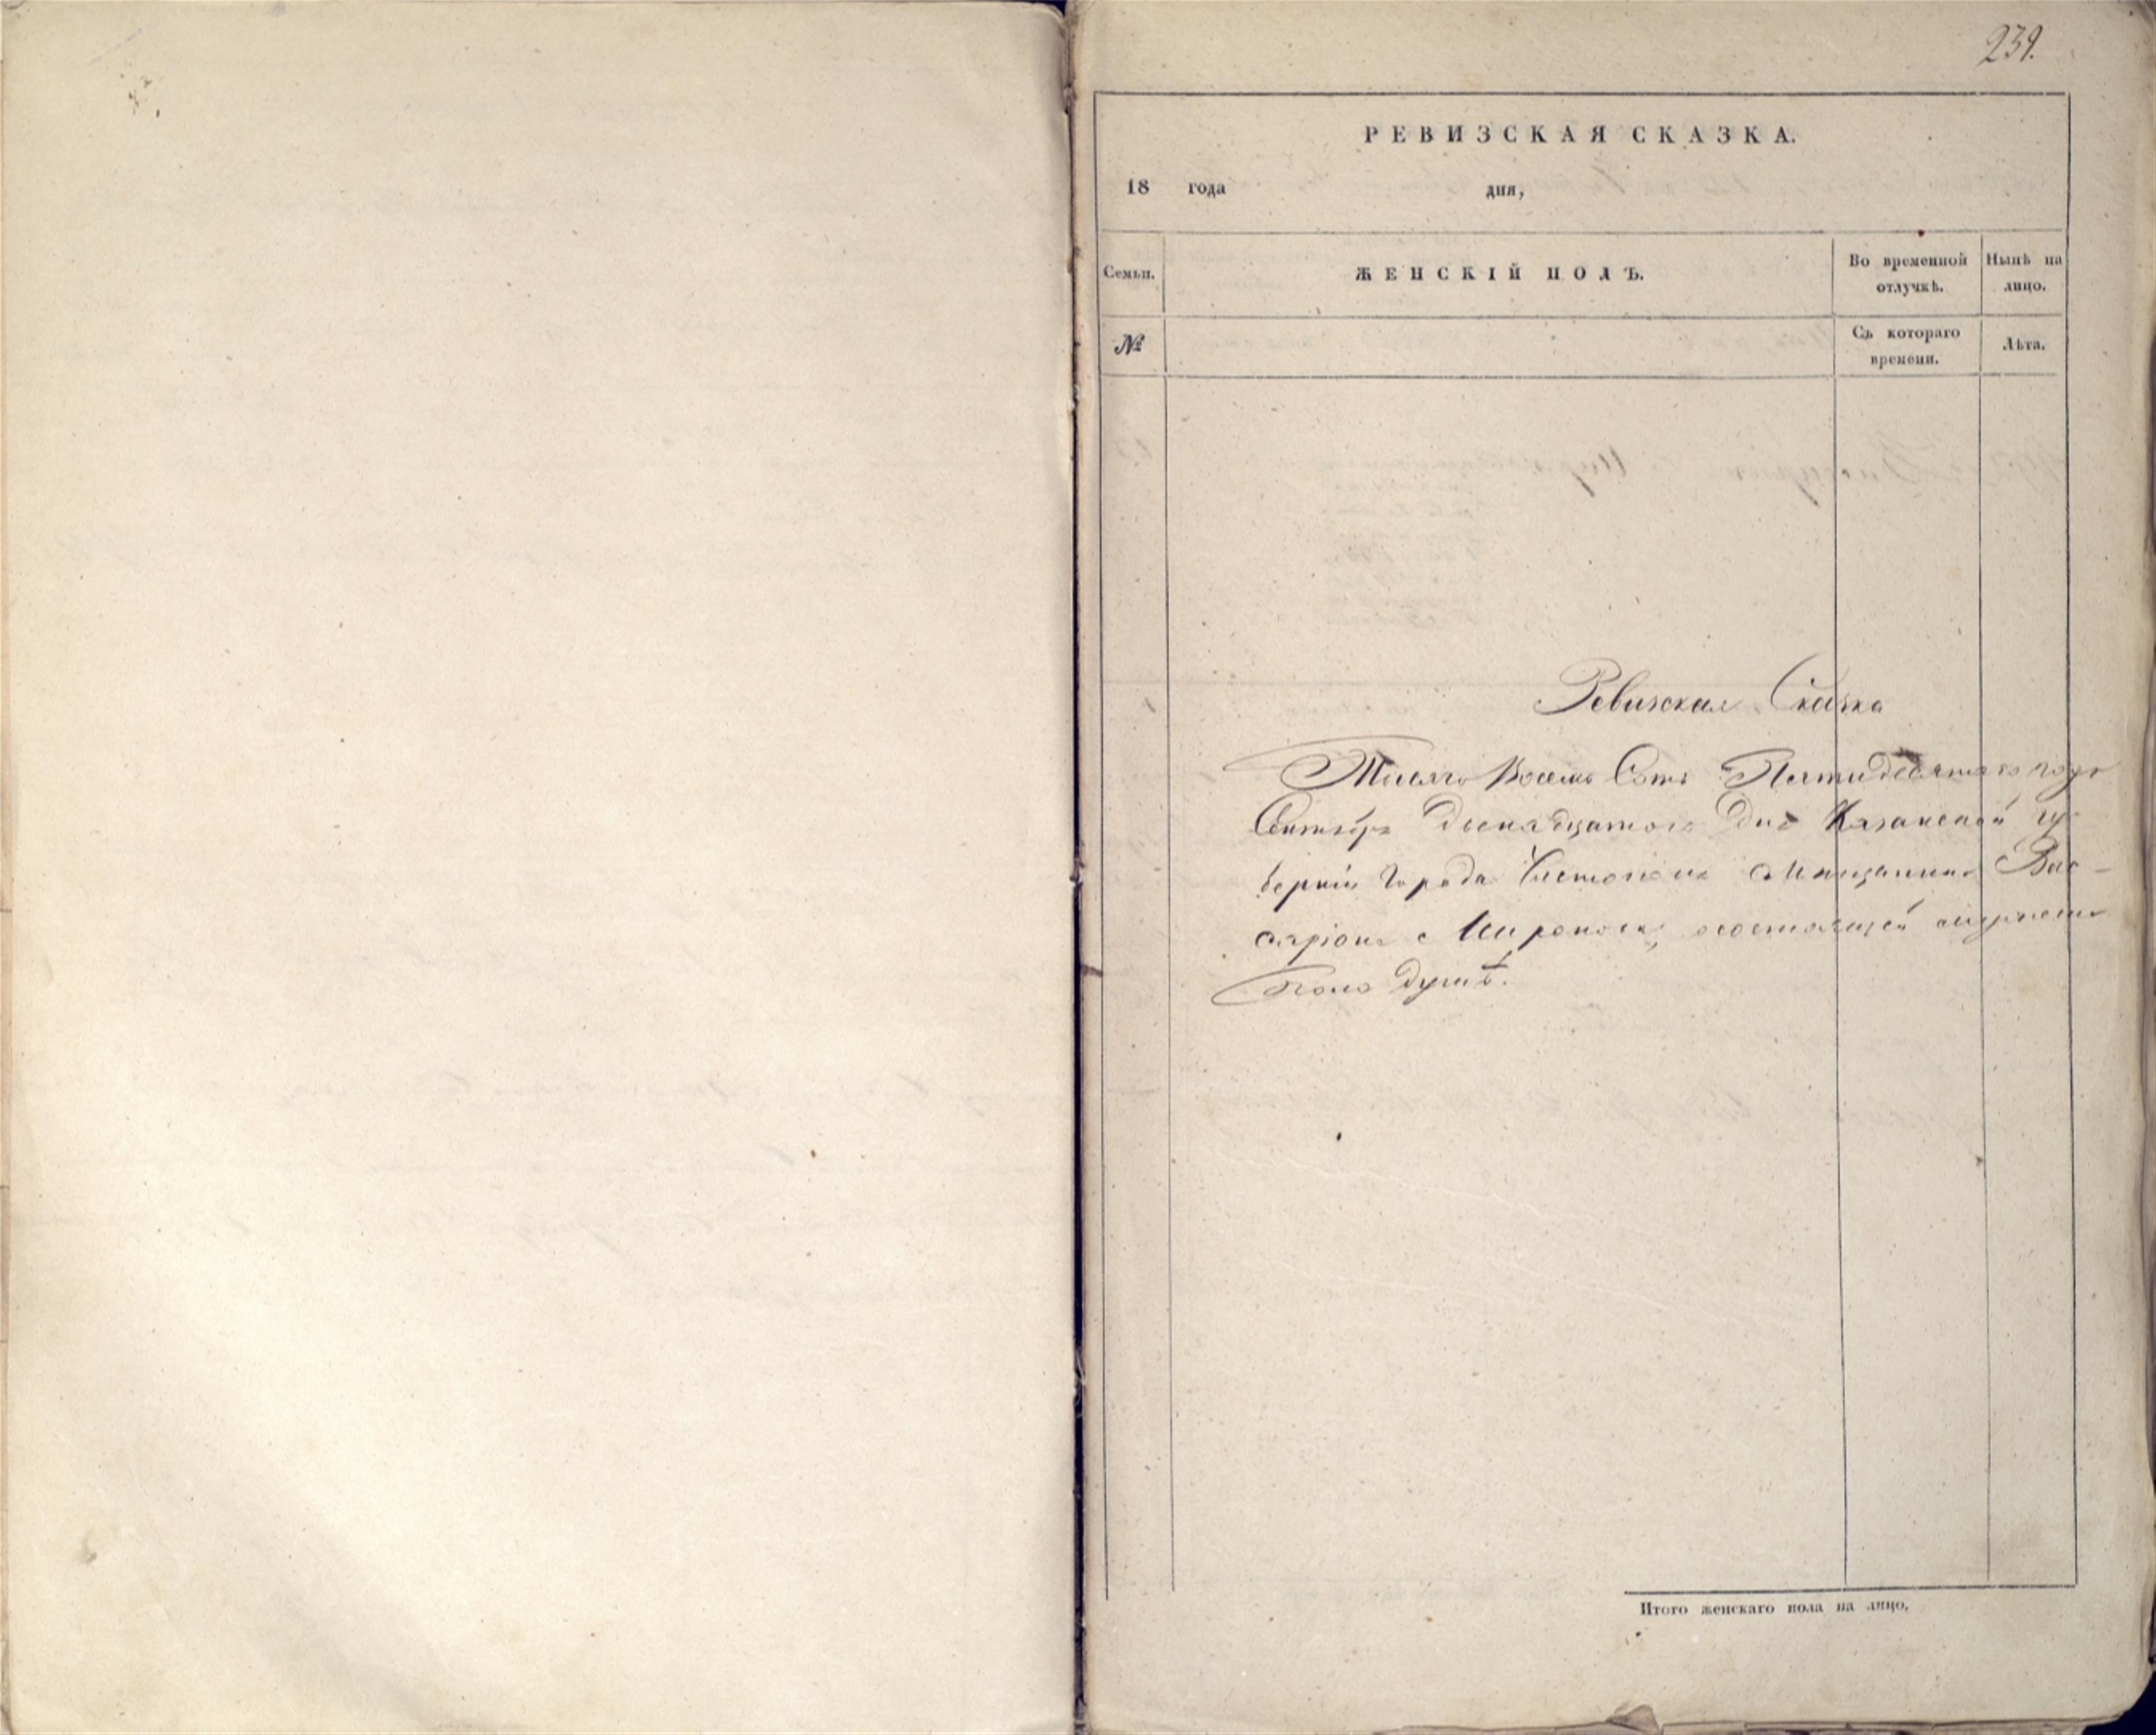 239.
РЕВИЗСКАЯ СКАЗКА.
18 года дня,
Семьи. ЖЕНСКІЙ ПОЛЪ. Во временной отлучкѣ. Нынѣ на лицо.
№ Съ котораго времени. Лѣта.
Ревизская Сказка
Тысяча Восемь Сотъ Пятидесятаго года
Сентября Двенадцатаго дня Казанской гу-
берніи Города Чистополя Мѣщанина Вис-
саріона Миронова, о состоящей мужеска
пола душѣ.
Итого женскаго пола на лицо.